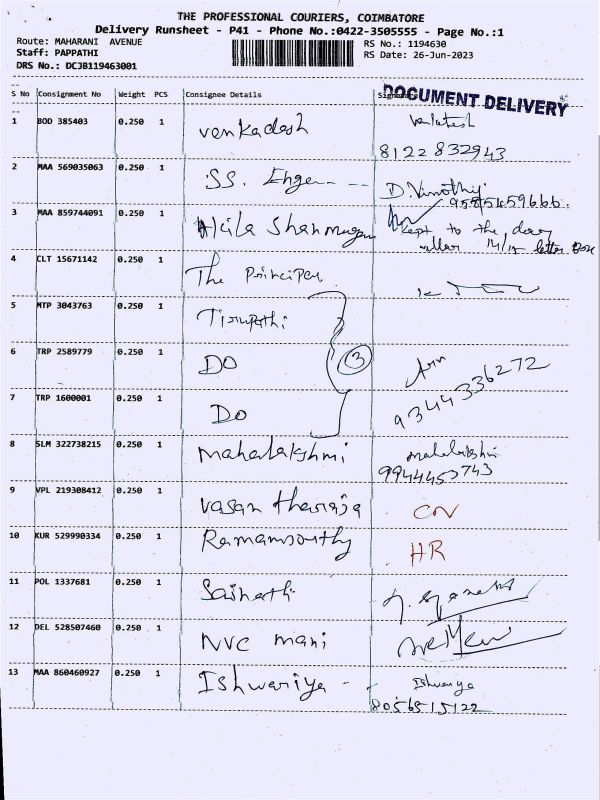 THE PROFESSIONAL COURIERS, COIMBATORE
Delivery Runsheet - P41 - Phone No.:0422-3505555 - Page No.:1
Route: MAHARANI AVENUE RS No.: 1194630
Staff: PAPPATHI RS Date: 26-Jun-2023
DRS No.: DCJB119463001
DOCUMENT DELIVERY
S No Consignment No Weight PCS Consignee Details
1 BOD 385403 0.250 1 Venkadesh Venkatesh
8122832943
2 MAA 569035063 0.250 1 SS. D. Vinothy
3 MAA 859744091 0.250 1 Akila Shanmugam kept to the door
letter Box
4 CLT 15671142 0.250 1 The Principal
5 MTP 3043763 0.250 1 Tirupathi
6 TRP 2589779 0.250 1 DO 3
7 TRP 1600001 0.250 1 DO 9344336272
8 SLM 322738215 0.250 1 Mahalakshmi mahalakshmi
9944453743
9 VPL 219308412 0.250 1 Vasan CN
10 KUR 529990334 0.250 1 Ramamoorthy HR
11 POL 1337681 0.250 1 Sainath
12 DEL 528507460 0.250 1 NVC mani
13 MAA 860460927 0.250 1 Ishwariya - Ishwarya
8056515122